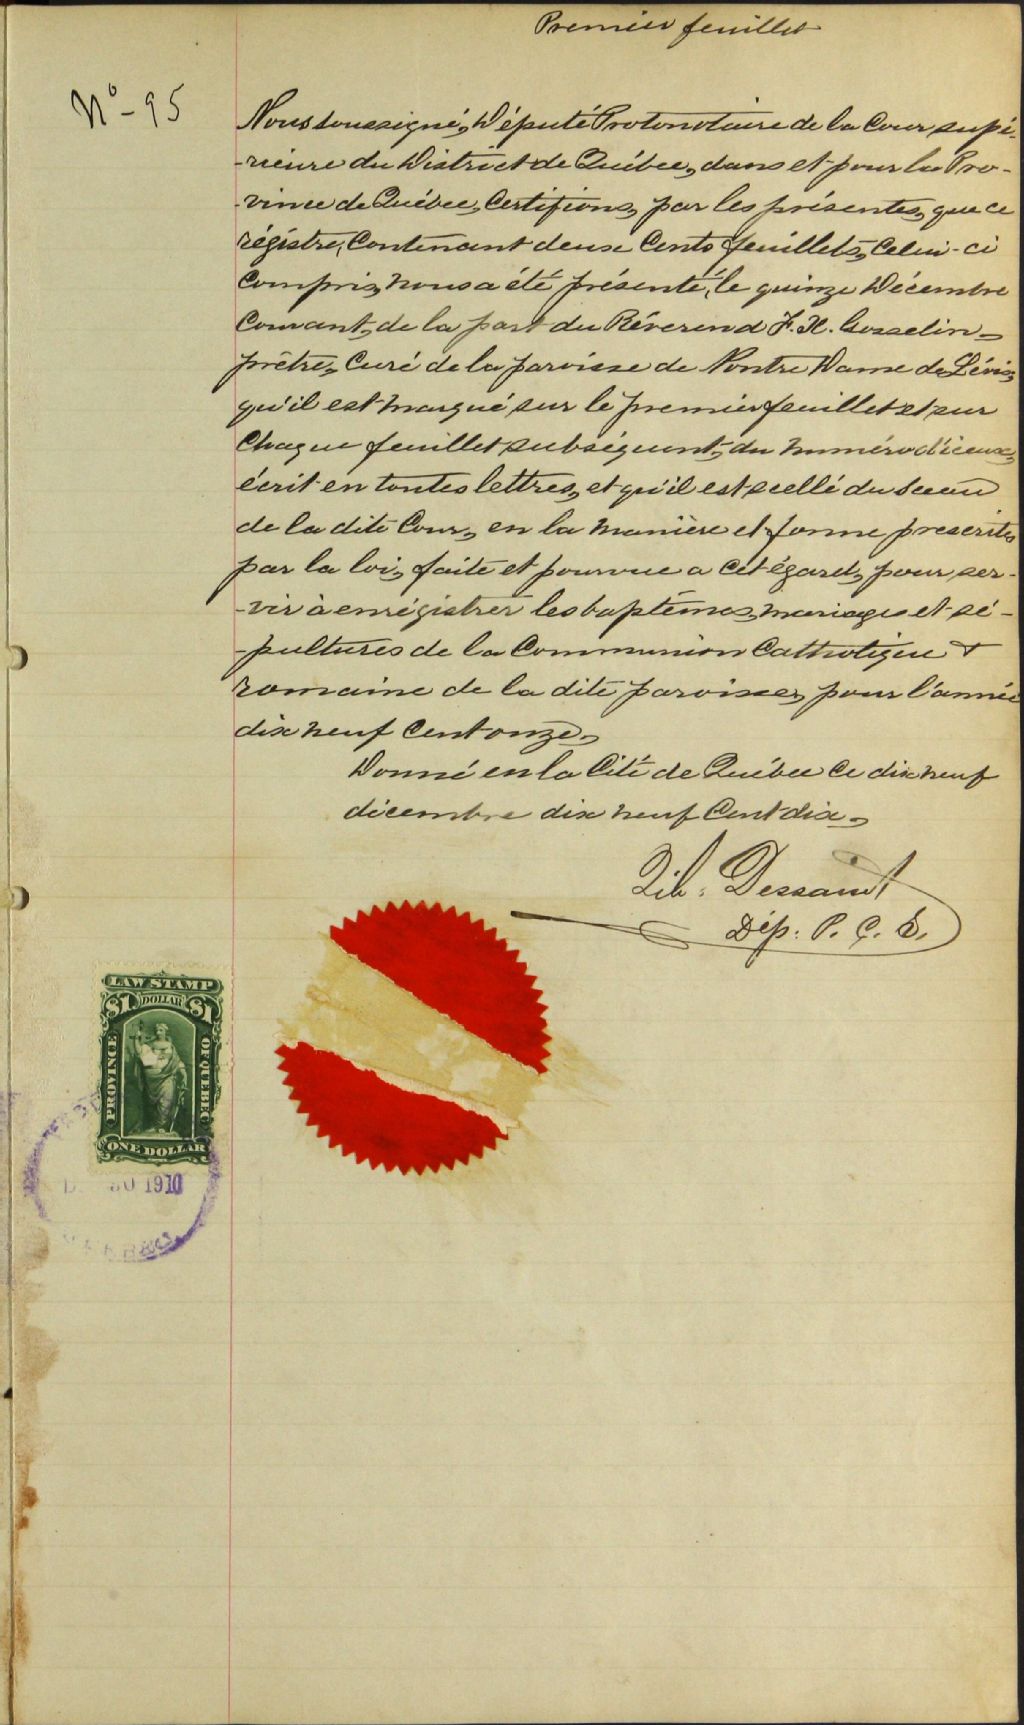 Premier feuillet
No - 95
Nous soussigné, Député Protonotaire de la Cour supé-
-rieure du District de Québec, dans et pour la Pro-
-vince de Québec, Certifions, par les présentes, que ce
régistre, Contenant deux Cents feuillets, Celui-ci
Compris, nous a été présenté, le quinze Décembre
Courant, de la part du Révérend F. X. Gosselin,
prêtre, Curé de la paroisse de Nontre Dame de Lévis,
qu'il est marqué sur le premier feuillet et sur
Chaque feuillet subséquent, du numéro d'iceux,
écrit en toutes lettres, et qu'il est scellé du Sceau
de la dite Cour, en la manière et forme prescrites
par la loi, faite et pourvue a cet égard, pour ser-
-vir à enrégistrer les baptêmes, mariages et sé-
-pultures de la Communion Catholique &
romaine de la dite paroisse, pour l'année
dix neuf Cent onze,
Donné en la Cité de Québec Ce dix neuf
décembre dix neuf Cent dix,
Dessault
Dép. P. C. S.
LAW STAMP
$1 DOLLAR $1
PROVINCE OF QUEBEC
ONE DOLLAR
30 1910